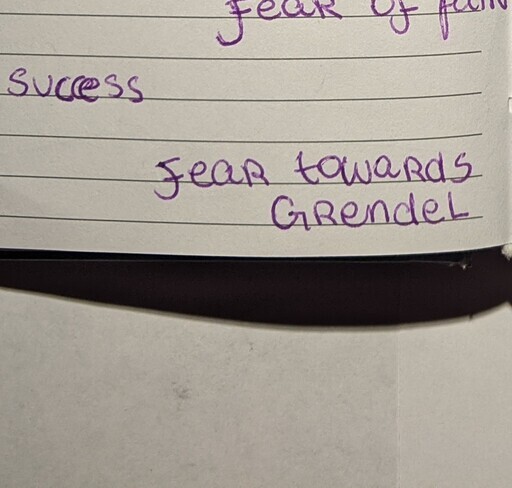 fear of
success
fear towards
Grendel